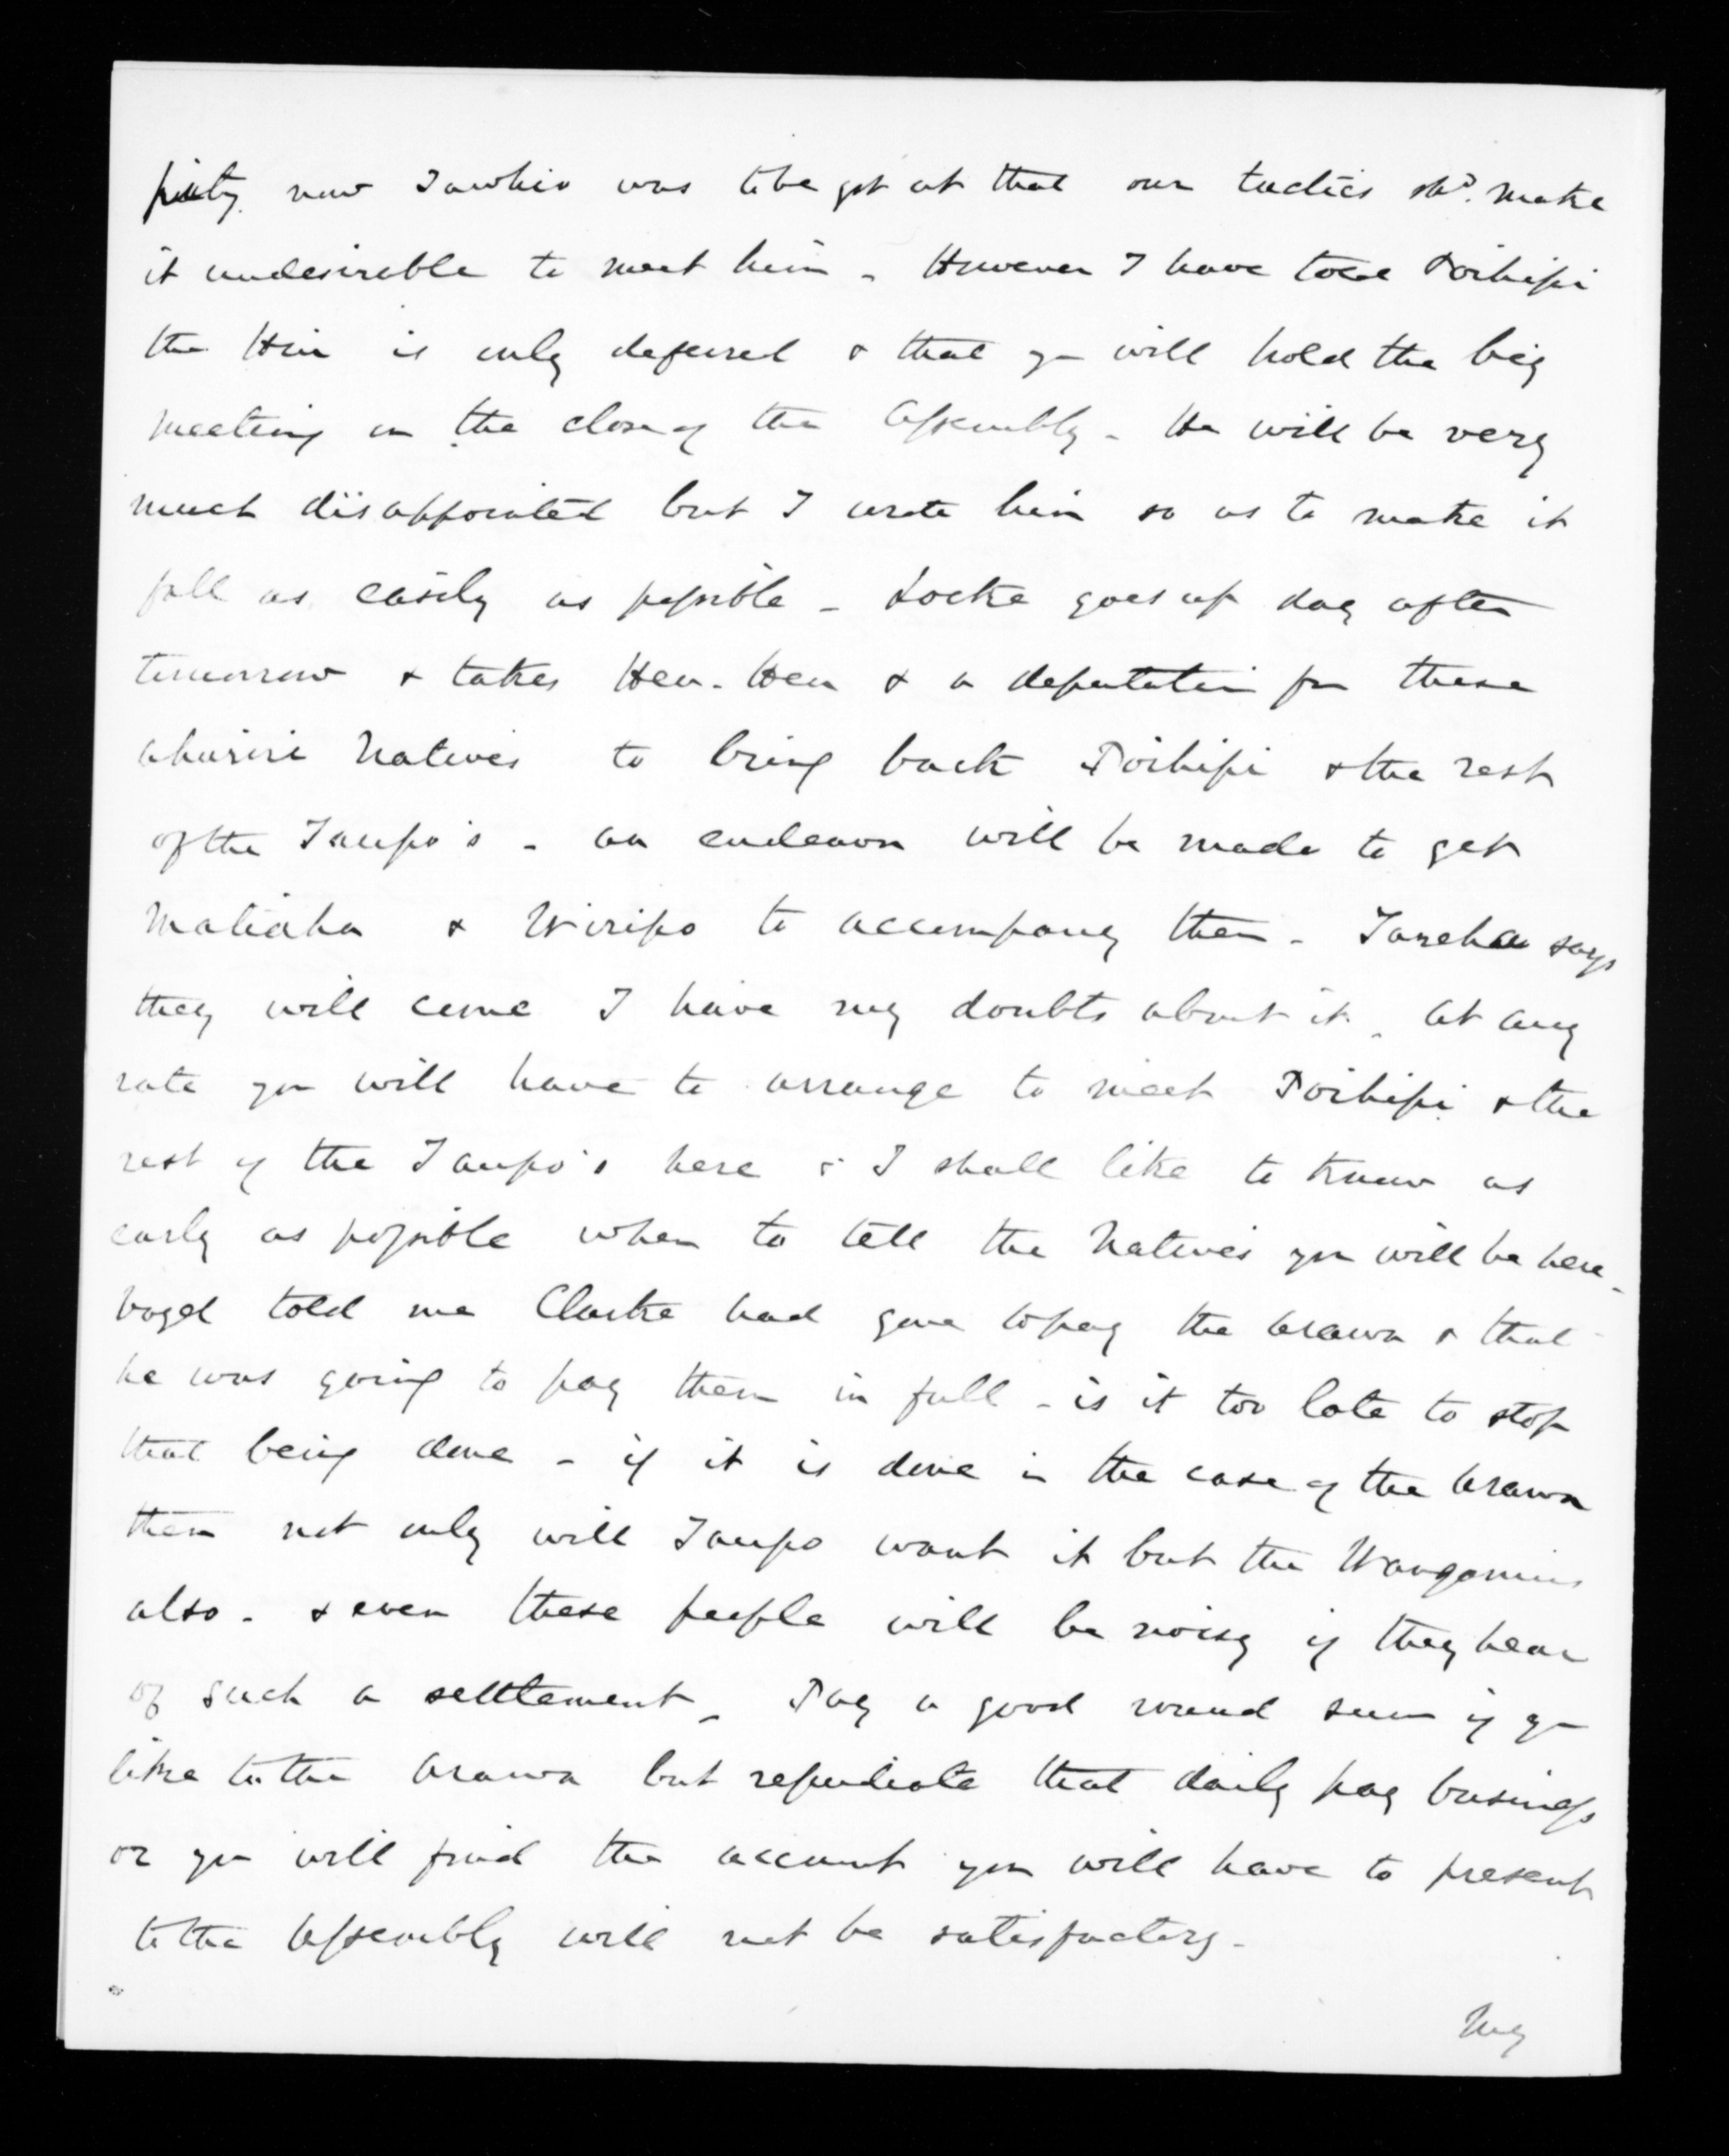 pity now Tawhio was to be got at that our tactics shd. make
it undesirable to meet him - However I have told Poihipi
the Hui is only deferred & that you will hold the big
meeting on the close of the Assembly - He will be very
much disappointed but I wrote him so as to make it
fall as easily as possible - Locke goes up day after
tomorrow & takes Heu-Heu & a deputation fm these
Ahuriri Natives to bring back Poihipi & the rest
of the Taupo's - an endeavor will be made to get
Matiaha & Wiripo to accompany them - Tareha says
they will come I have my doubts about it - At any
rate you will have to arrange to meet Poihipi & the
rest of the Taupo's here & I shall like to know as
early as possible when to tell the Natives you will be here -
Vogel told me Clarke had gone to pay the Arawa & that
he was going to pay them in full - is it too late to stop
that being done - if it is done in the case of the Arawa
then not only will Taupo want it but the Wanganuis
also - & even these people will be noisy if they hear
of such a settlement - Pay a good round sum if you
like to the Arawa but repudiate that daily pay business
or you will find the account you will have to present
to the Assembly will not be satisfactory -
My